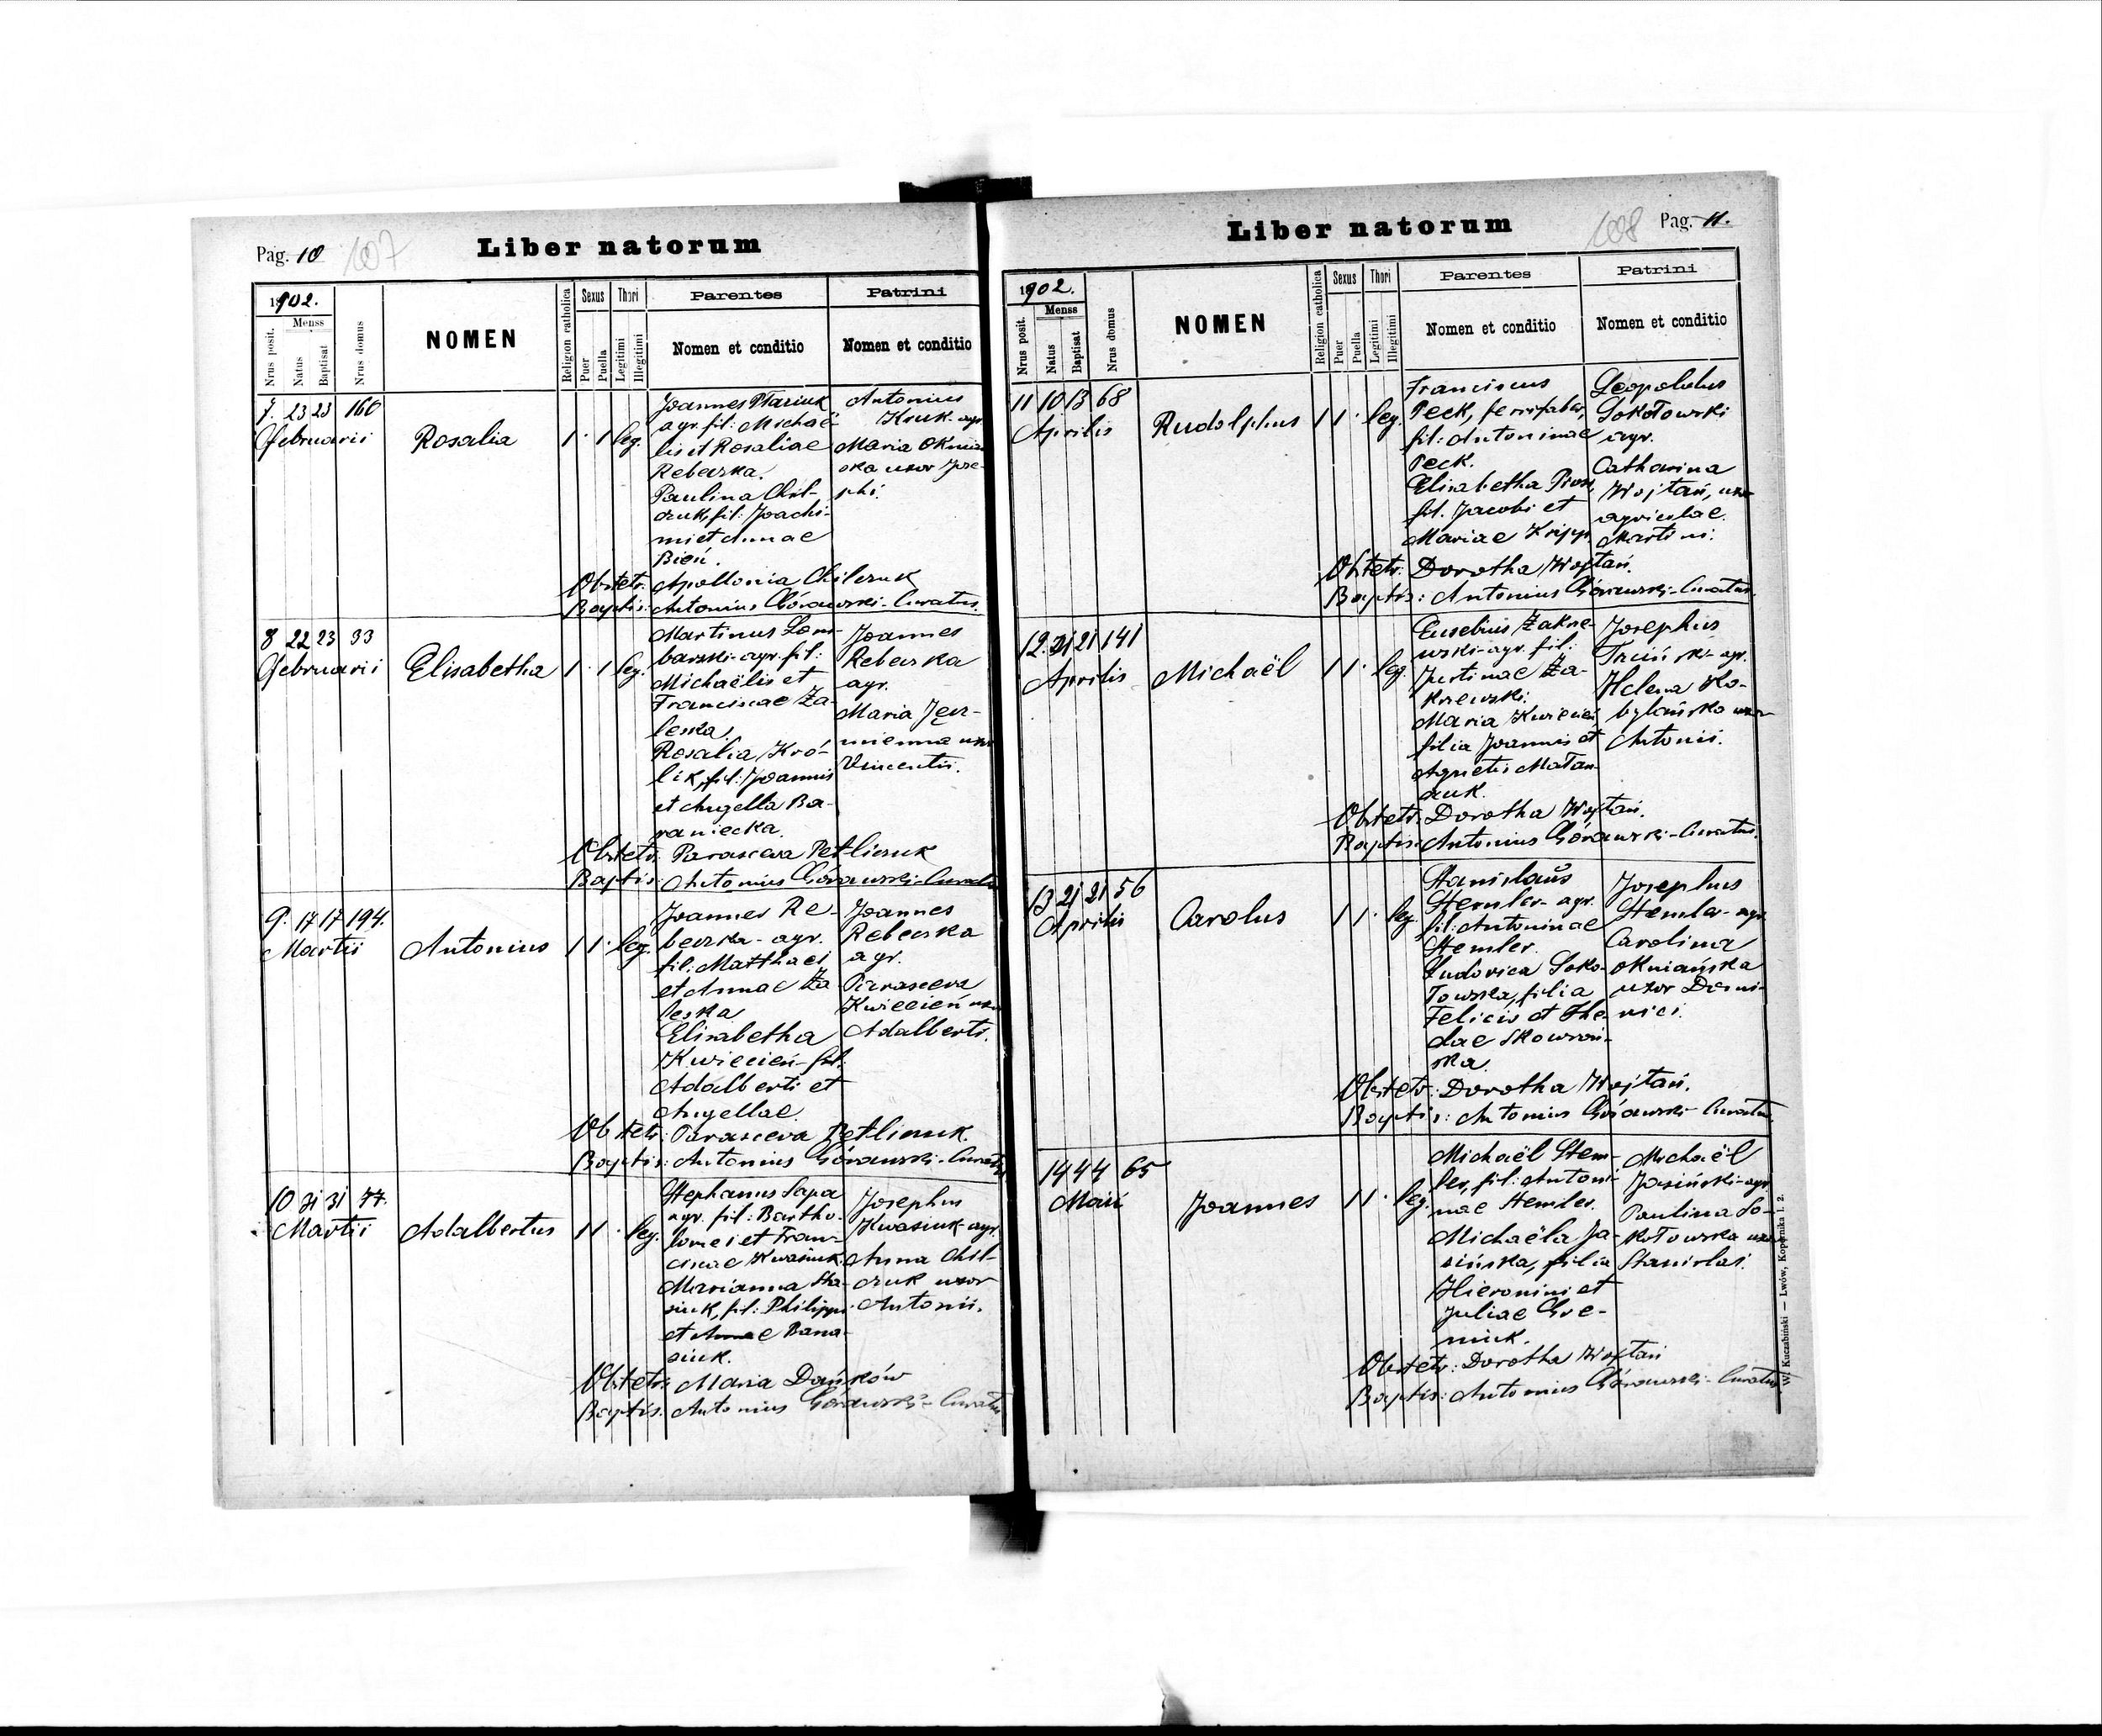 Pag. 10 607 Liber natorum
1902.
Menss
Nrus posit.
Natus
Baptisat
Nrus domus
NOMEN
Religion catholica
Sexus
Puer
Puella
Thori
Legitimi
Illegitimi
Parentes
Nomen et conditio
Patrini
Nomen et conditio
7. 23 23 160
Februarii
Rosalia
1 · 1 leg.
Joannes Ptasiuk
agr. fil: Michaë-
lis et Rosaliae
Rebeczka.
Paulina Chil-
czuk, fil: Joachi-
mi et Annae
Bień.
Antonius
Kruk agr.
Maria Okniań
ska uxor Jose-
phi.
Obstetr: Apollonia Chilczuk
Baptis: Antonius Górawski - Curatus.
8 22 23 33
Februarii
Elisabetha
1 · 1 leg.
Martinus Lom-
barski - agr. fil:
Michaëlis et
Franciscae Za-
leska.
Rosalia Kró-
lik, fil: Joannis
et Angella Ba-
raniecka.
Joannes
Rebeczka
agr.
Maria
uxor
Vincentii.
Obstetr: Parasceva Petliczuk
Baptis: Antonius Górawski - Curatus
9. 17 17 194.
Martii
Antonius
1 1 · leg.
Joannes Re-
beczka - agr.
fil: Matthaei
et Annae Za-
leska
Elisabetha
Kwiecień - fil:
Adalberti et
Angellae
Joannes
Rebeczka
agr.
Parasceva
Kwiecień uxor
Adalberti.
Obstetr: Parasceva Petliczuk.
Baptis: Antonius Górawski - Curatus
10 31 31 77.
Martii
Adalbertus
1 1 · leg.
Stephanus Sapa
agr. fil: Bartho-
lomei et Fran-
ciscae Kwasiuk.
Marianna Sta-
siuk, fil: Philippi
et Annae Bana-
siuk.
Josephus
Kwasiuk - agr.
Anna Chil-
czuk uxor
Antonii.
Obstetr: Maria Dańków
Baptis: Antonius Górawski - Curatus
Liber natorum 608 Pag. 11.
1902.
Menss
Nrus posit.
Natus
Baptisat
Nrus domus
NOMEN
Religion catholica
Sexus
Puer
Puella
Thori
Legitimi
Illegitimi
Parentes
Nomen et conditio
Patrini
Nomen et conditio
11 10 13 68
Aprilis
Rudolphus
1 1 · leg.
Franciscus
Peck, ferrifaber,
fil: Antoninae
Peck.
Elisabetha
fil. Jacobi et
Mariae
Leopoldus
Sokołowski
agr.
Catharina
Wojtań, uxor
agricolae
Martini.
Obstetr: Dorotha Wojtań.
Baptis: Antonius Górawski - Curatus.
12. 21 21 141
Aprilis
Michaël
1 1 · leg.
Eusebius Zakrze-
wski - agr. fil:
Justinae Za-
krzewski.
Maria Kwiecień
filia Joannis et
Agnetis Małan-
czuk.
Josephus
agr.
Helena Ko-
bylańska uxor
Antonii.
Obstetr: Dorotha Wojtań.
Baptis: Antonius Górawski - Curatus.
13 21 21 56
Aprilis
Carolus
1 1 · leg.
Stanislaus
Stemler - agr.
fil: Antoninae
Stemler.
Ludovica Soko-
łowska, filia
Felicis et The-
clae Skowroń-
ska.
Josephus
Stemler - agr.
Carolina
Okniańska
uxor Domi-
nici.
Obstetr: Dorotha Wojtań.
Baptis: Antonius Górawski - Curatus.
14 4 4 65
Maii
Joannes
1 1 · leg.
Michaël Stem-
ler, fil: Antoni-
nae Stemler.
Michaëla Ja-
sińska, filia
Hieronimi et
Juliae
Michaël
Jasiński - agr.
Paulina So-
kołowska uxor
Stanislai.
Obstetr: Dorotha Wojtań
Baptis: Antonius Górawski - Curatus
W. Kuczabiński — Lwów, Kopernika l. 2.